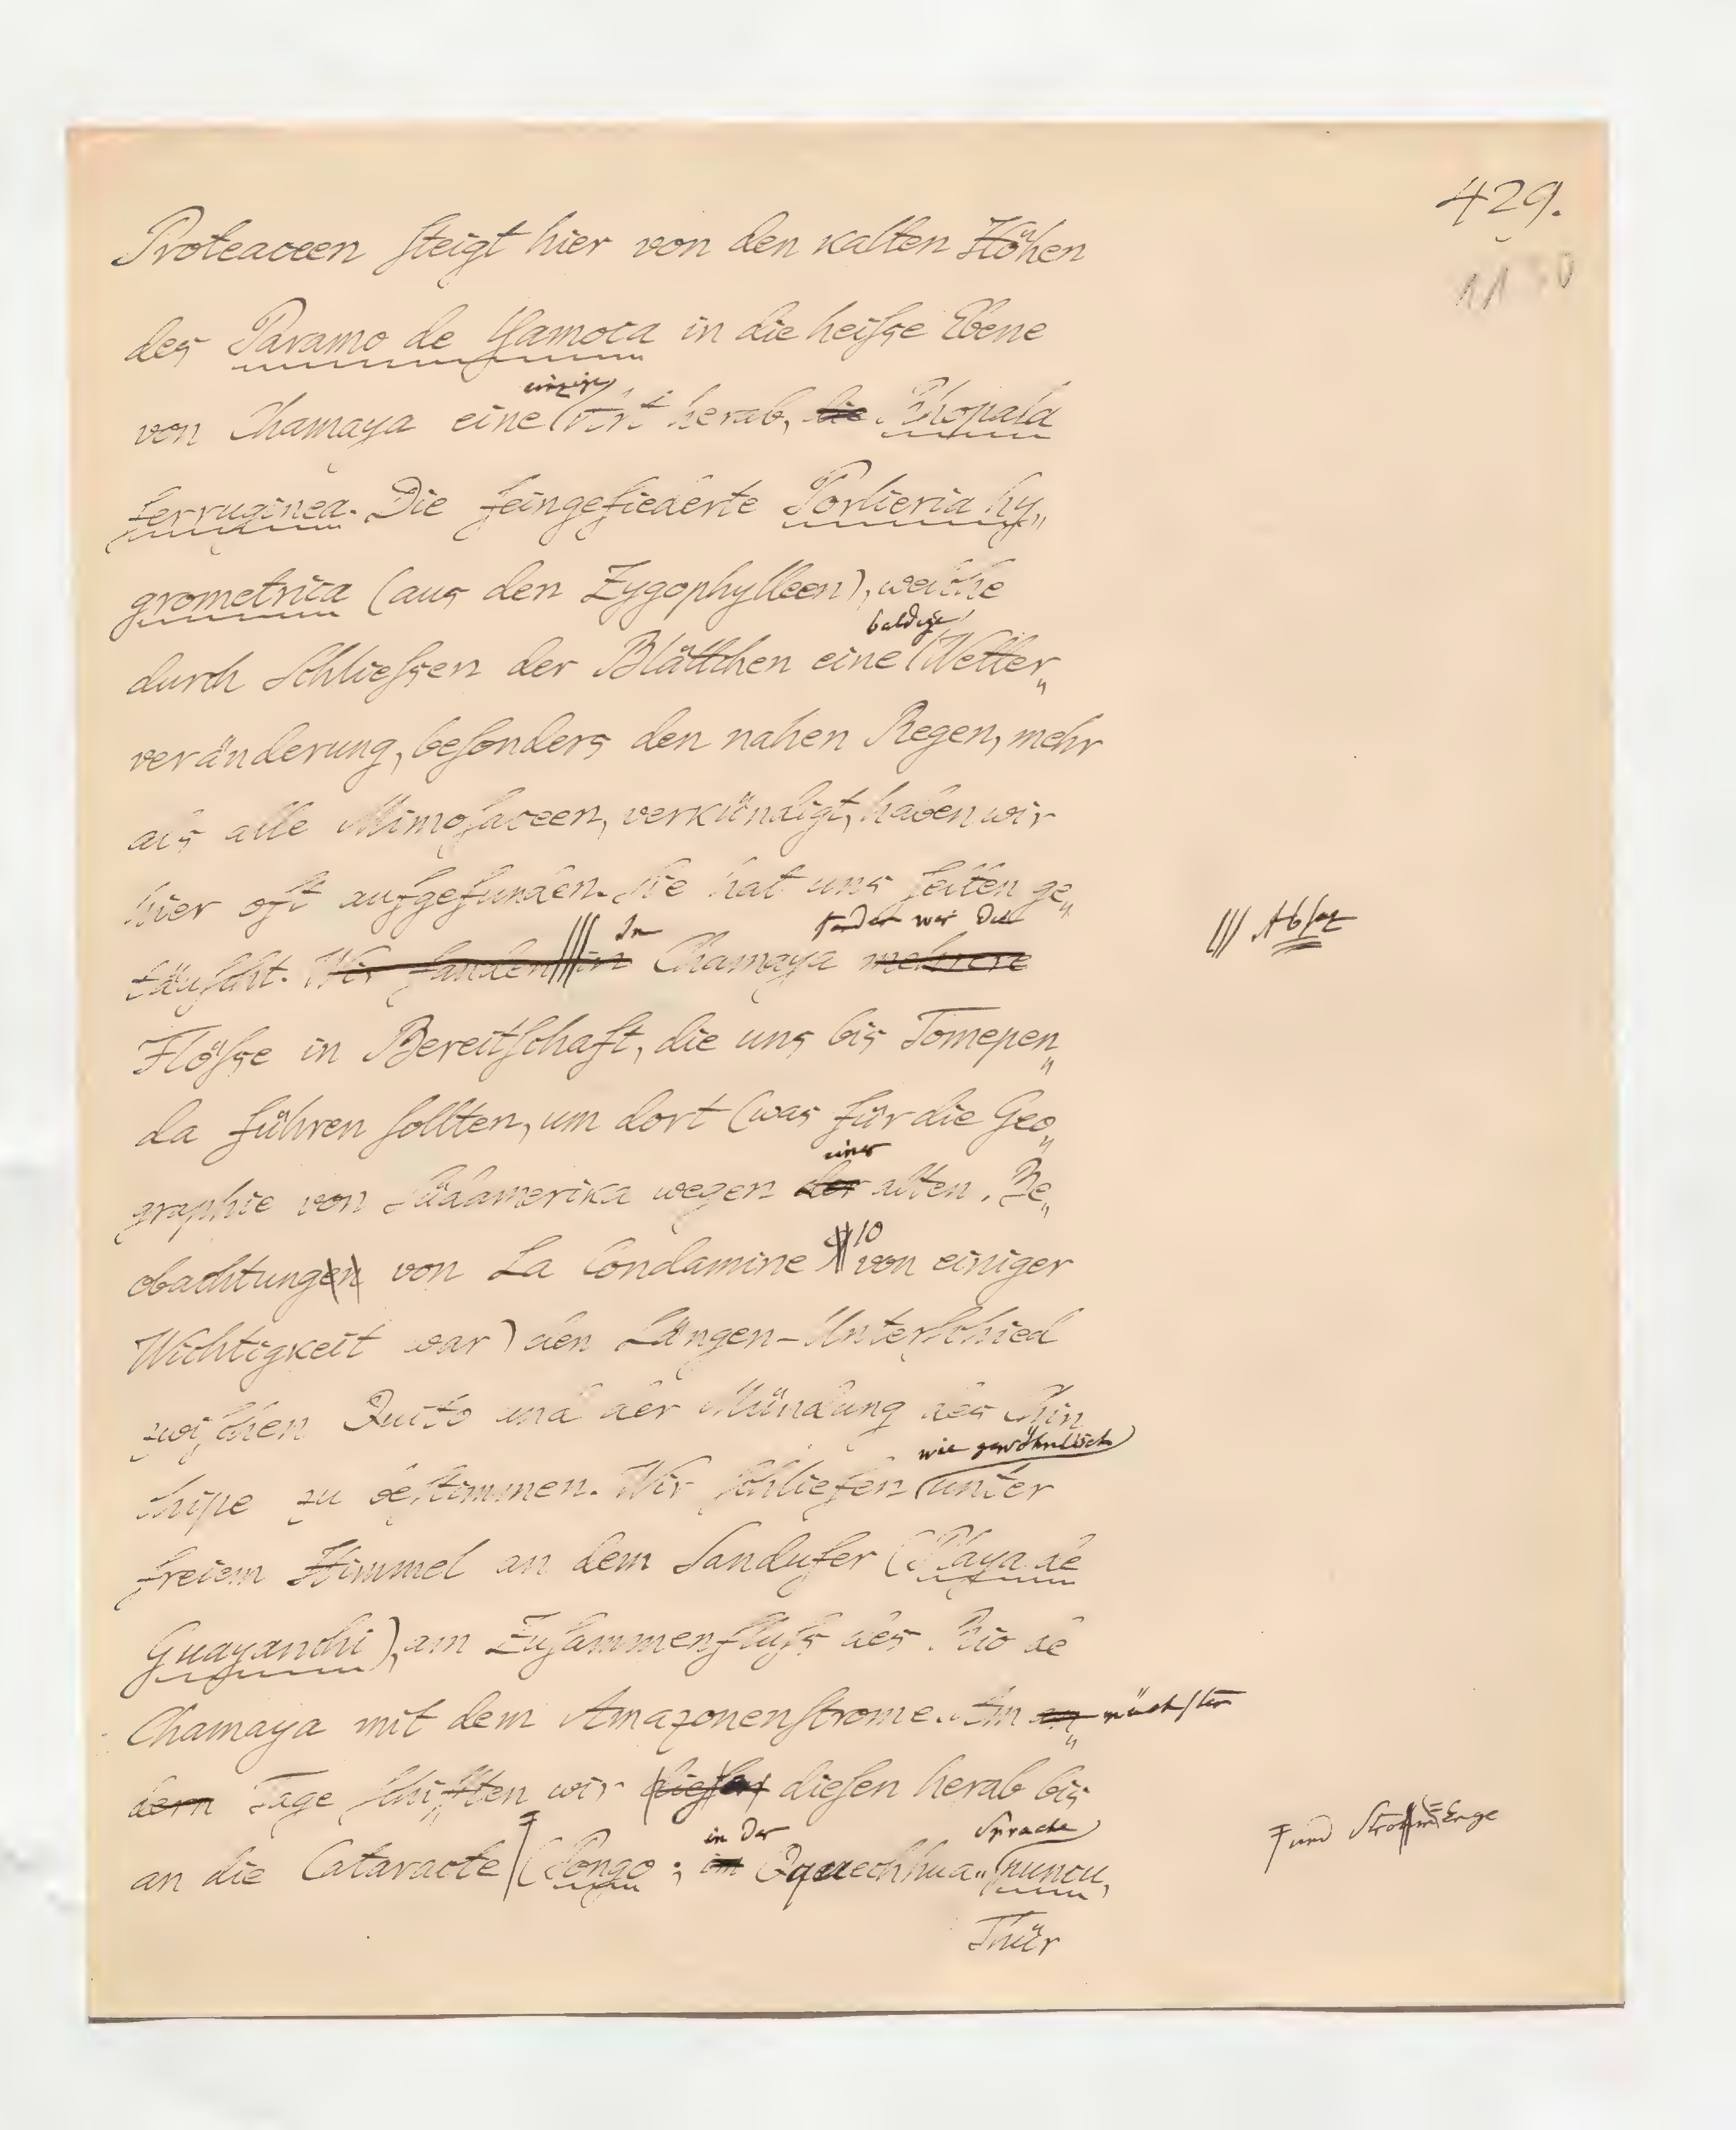 429.
Proteaceen ſteigt hier von den kalten Höhen
des Paramo de Yamoca in die heiſse Ebene
einzige
von Chamaya eine Art herab, die Rhopala
ferruginea. Die feingefiederte Porlieria hy„
grometrica (aus den Zygophylleen), welche
baldige
durch Schlieſsen der Blättchen eine Wetter„
veränderung, beſonders den nahen Regen, mehr
als alle Mimoſaceen, verkündigt, haben wir
hier oft aufgefunden. Sie hat uns ſelten ge„
In fanden wir die
täuſcht. Wir fanden in Chamaya mehrere
||| Abſatz
Flöſse in Bereitſchaft, die uns bis Tomepen„
da führen ſollten, um dort (was für die Geo„
einer
graphie von Südamerika wegen der alten Be„
10
obachtungen von La Condamine von einiger
Wichtigkeit war) den Längen-Unterſchied
zwiſchen Quito und der Mündung des Chin
wie gewöhnlich
chipe zu beſtimmen. Wir ſchliefen unter
freiem Himmel an dem Sandufer (Playa de
Guayanchi), am Zuſammenfluſs des Rio de
Chamaya mit dem Amazonenſtrome. Am an„ nächſten
dern Tage ſchifften wir dieſen herab bis
und Strom-Enge
in der Sprache
an die Cataracte (Pongo; im Qquechhua„ puncu,
Thür